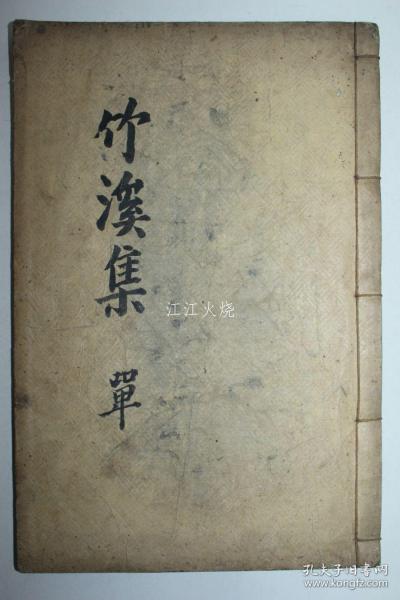 竹溪集
單
江江火烧
孔夫子旧书网
www.kongfz.com